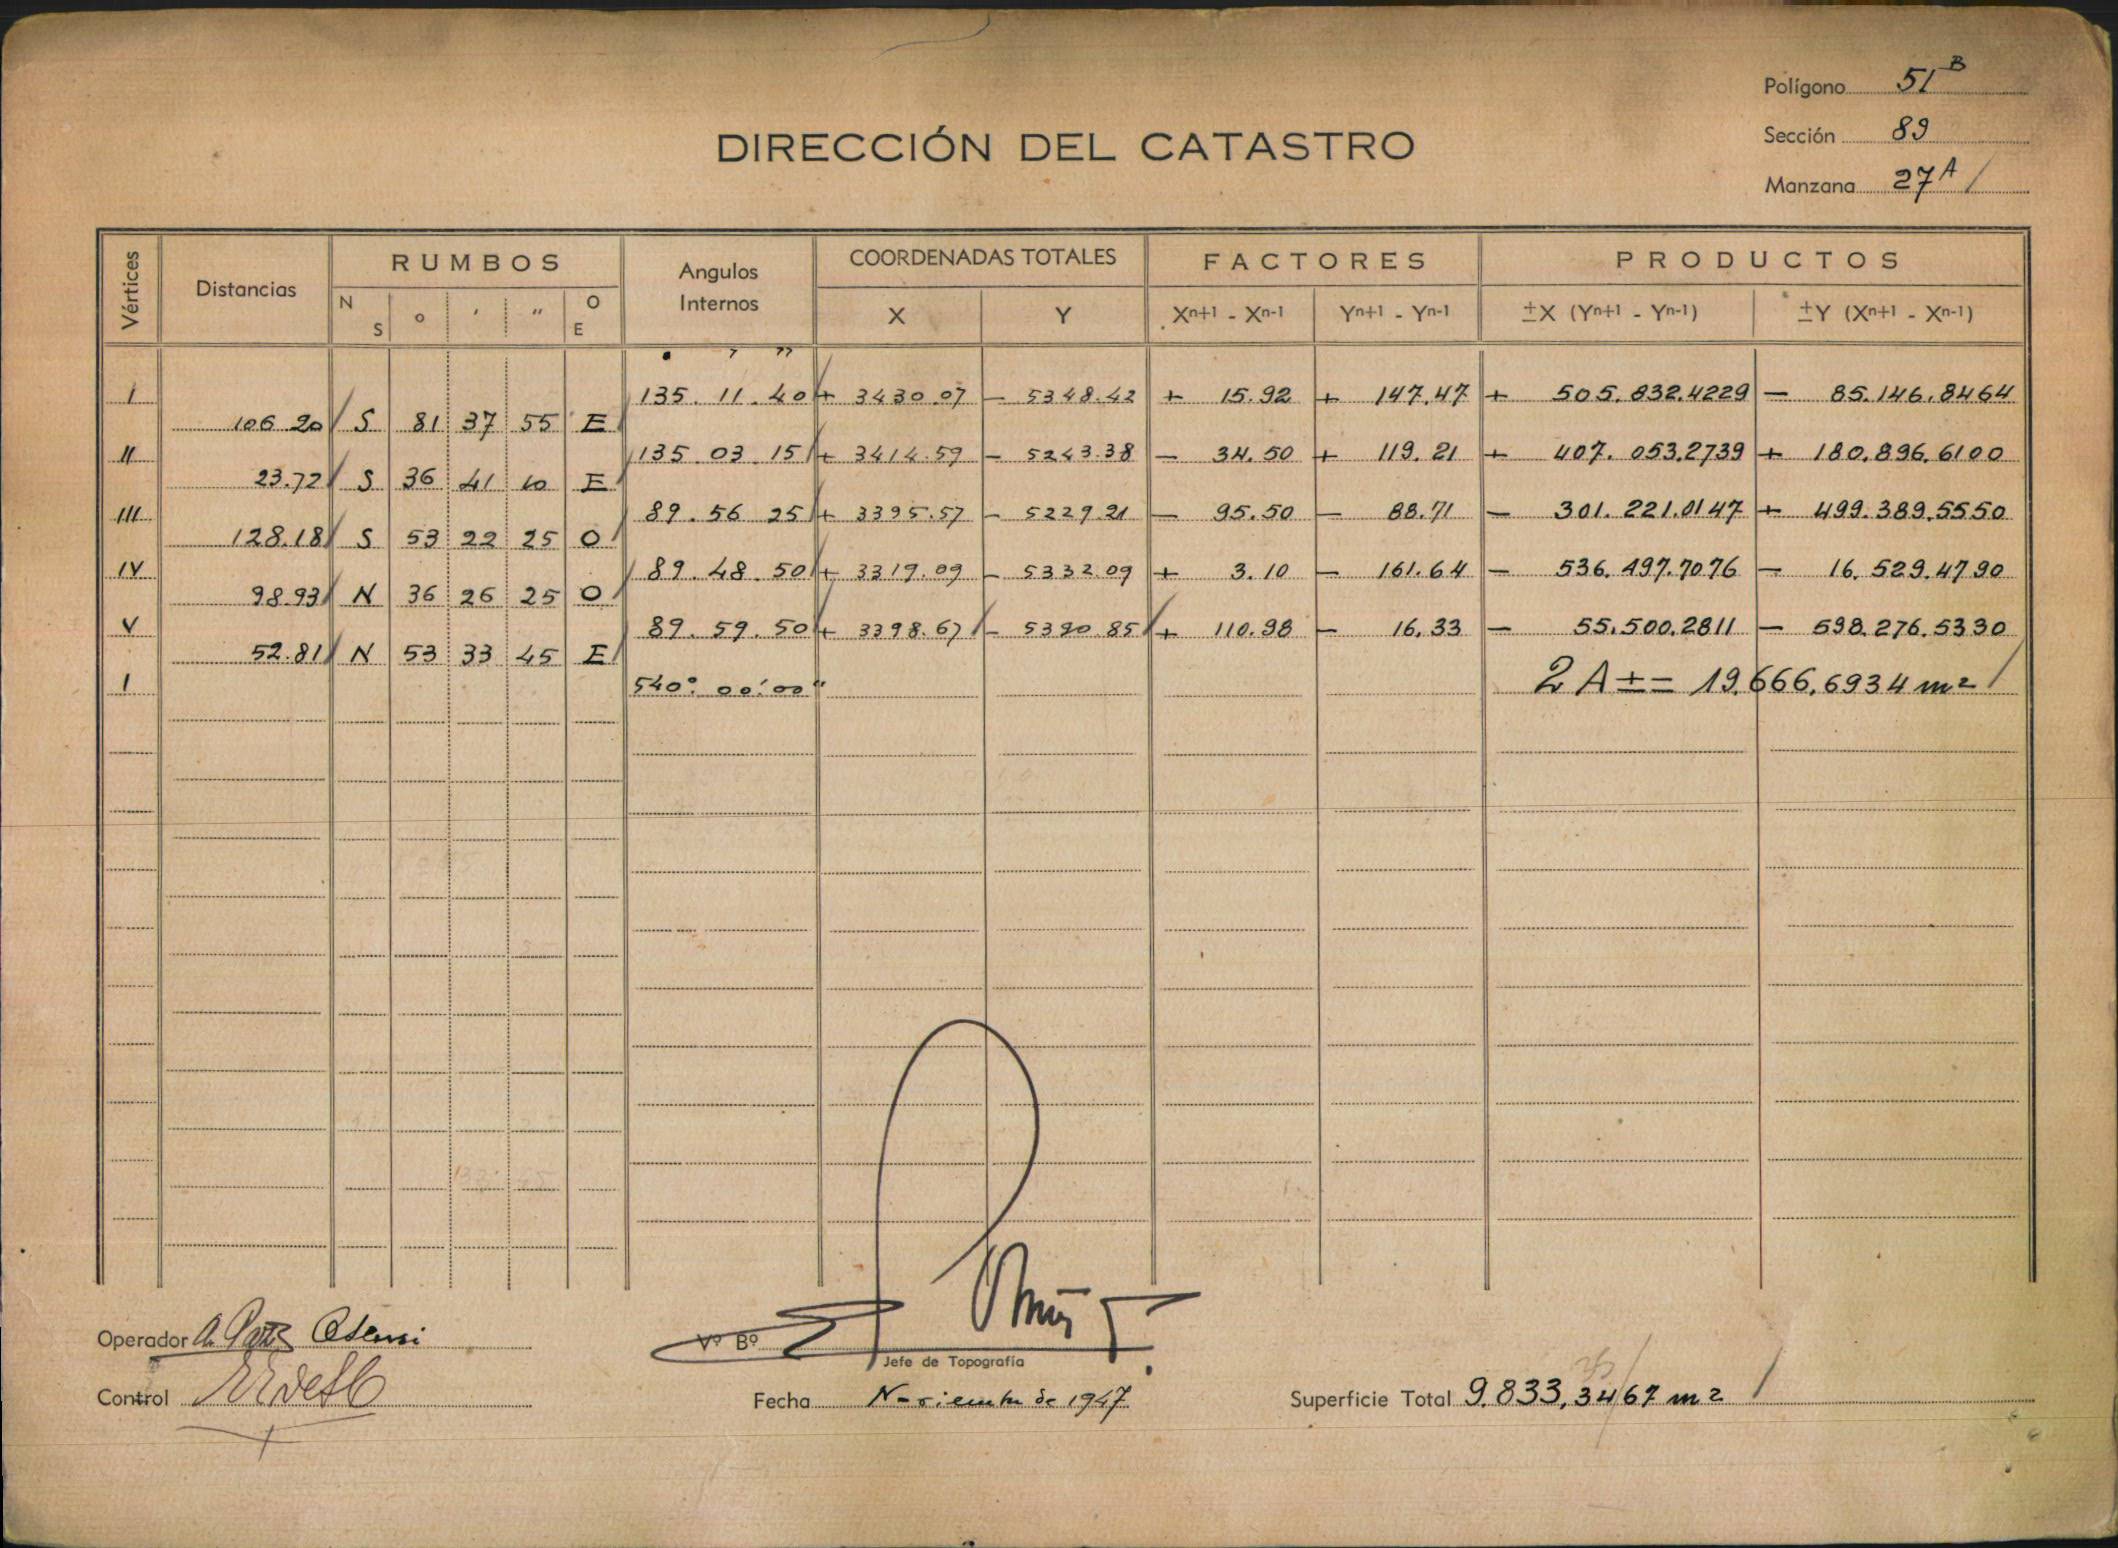 Polígono 51 B
Sección 89
Manzana 27 A /
DIRECCIÓN DEL CATASTRO
Vértices Distancias RUMBOS Angulos Internos COORDENADAS TOTALES FACTORES PRODUCTOS
N S o ' " O E X Y Xn+1 - Xn-1 Yn+1 - Yn-1 ±X (Yn+1 - Yn-1) ±Y (Xn+1 - Xn-1)
° ' "
I 135. 11. 40 + 3430.07 - 5348.42 + 15.92 + 147.47 + 505.832.4229 - 85.146.8464
106.20 S 81 37 55 E
II 135. 03. 15 + 3414.59 - 5243.38 - 34.50 + 119.21 + 407.053.2739 + 180.896.6100
23.72 S 36 41 10 E
III 89. 56 25 + 3395.57 - 5229.21 - 95.50 - 88.71 - 301.221.0147 + 499.389.5550
128.18 S 53 22 25 O
IV 89. 48. 50 + 3319.09 - 5332.09 + 3.10 - 161.64 - 536.497.7076 - 16.529.4790
98.93 N 36 26 25 O
V 89. 59. 50 + 3398.67 - 5390.85 + 110.98 - 16.33 - 55.500.2811 - 598.276.5330
52.81 N 53 33 45 E
I 540° 00' 00" 2 A ± = 19.666,6934 m2 /
Operador
Vº Bº
Jefe de Topografía
Control
Fecha Noviembre de 1947
Superficie Total 9.833,3467 m2 /